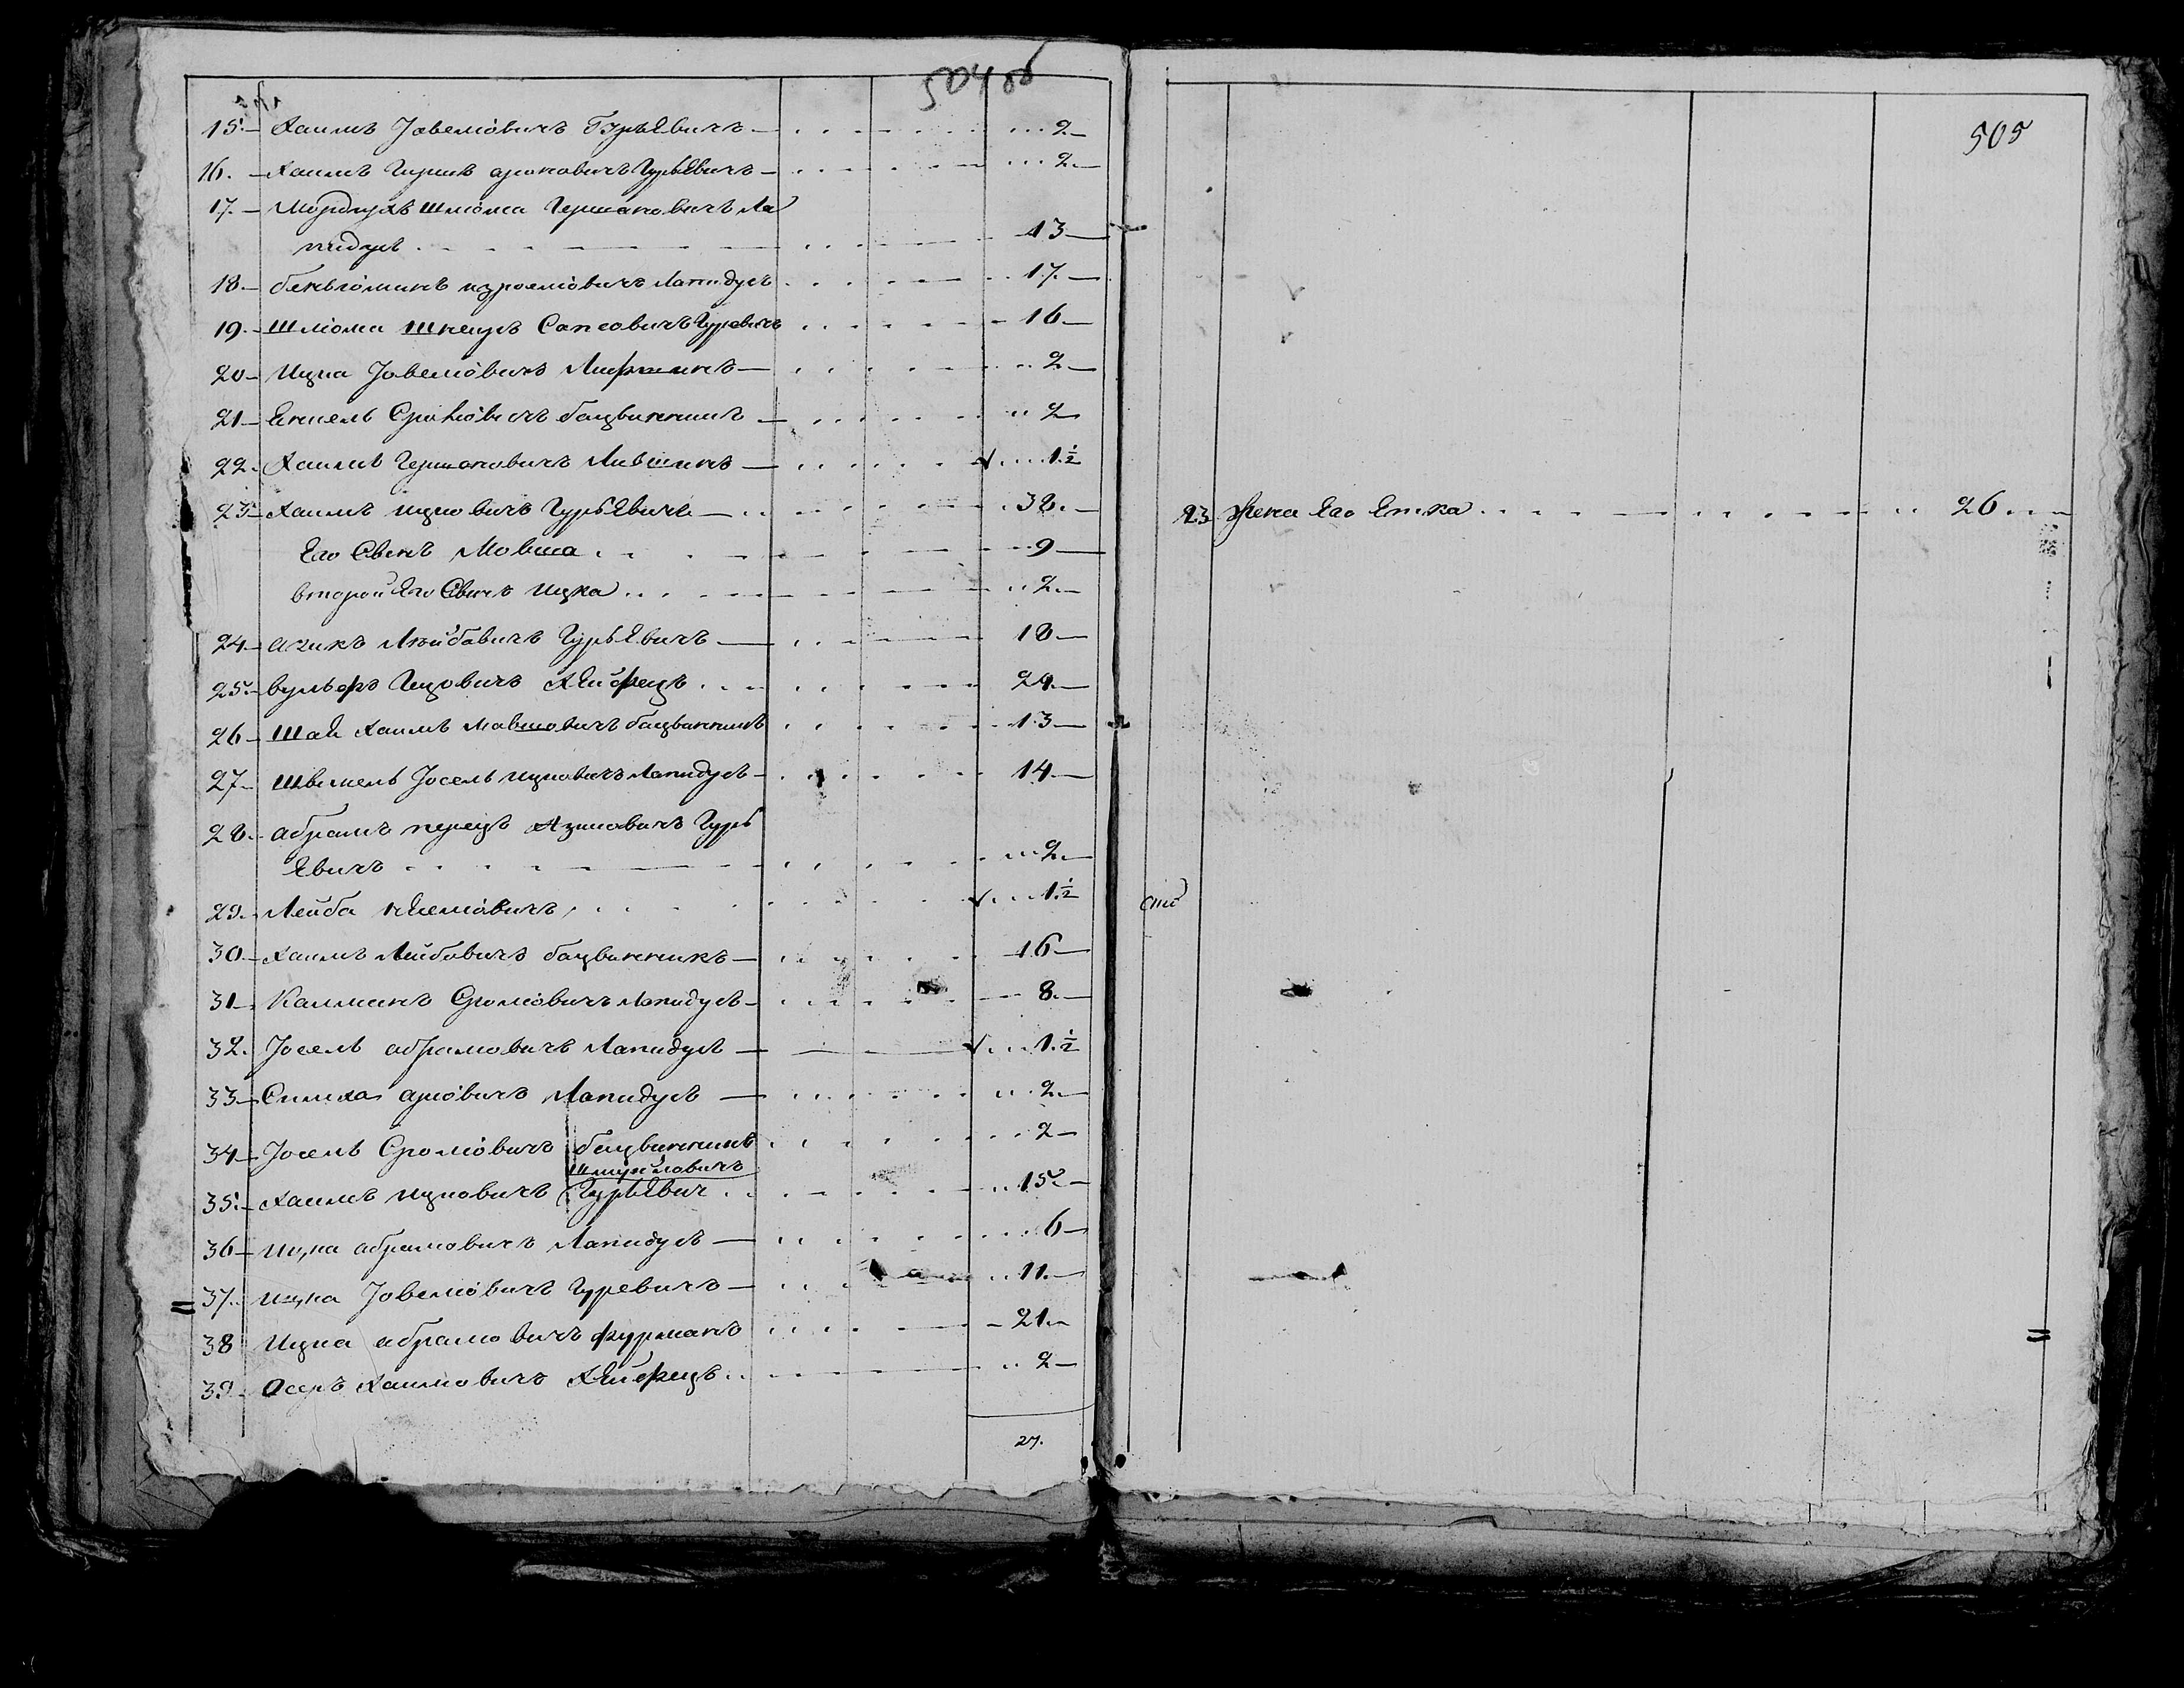 504 об
15. Хаимъ Іовелiовичъ Гурьевичъ 2
16. Хаимъ Гиршъ ароновичъ Гурьевичъ 2
17. Мордухъ Шлiома Гершоновичъ Ла
пидусъ 13
18. беньiоминъ израелiовичъ Лапидусъ 17
19. Шлiома Шнеуръ Гуревичъ 16
20. Ицка Іовелiовичъ Лифшинъ 2
21. Енкель бацвинникъ 2
22. Хаимъ Гершоновичъ Лившинъ 1 1/2
23. Хаимъ ицковичъ Гурьевичъ 38
Его Сынъ Мовша 9
второй Его Сынъ Ицка 2
24. Лейбовичъ Гурьевичъ 18
25. вульфъ Хейфецъ 24
26. Шая Хаимъ Мовшовичъ бацвинникъ 13
27. Іосель ицковичъ Лапидусъ 14
28. абрамъ перецъ Гурь
Евичъ 2
29. Лейба 1 1/2
30. Хаимъ Лейбовичъ бацвинникъ 16
31. Калманъ Сромiовичъ Лапидусъ 8
32. Іосель абрамовичъ Лапидусъ 1 1/2
33. Симха Лапидусъ 2
34. Іосель Сромiовичъ бацвинникъ 2
Шмуйловичъ
35. Хаимъ ицковичъ Гурьевич 15
36. Ицка абрамовичъ Лапидусъ 6
37. ицка Іовелiовичъ Гуревичъ 11
38 Ицка абрамовичъ фурманъ 21
39. Осеръ Хаимовичъ Хейфецъ 2
27.
505
23 жена Его Етка 26